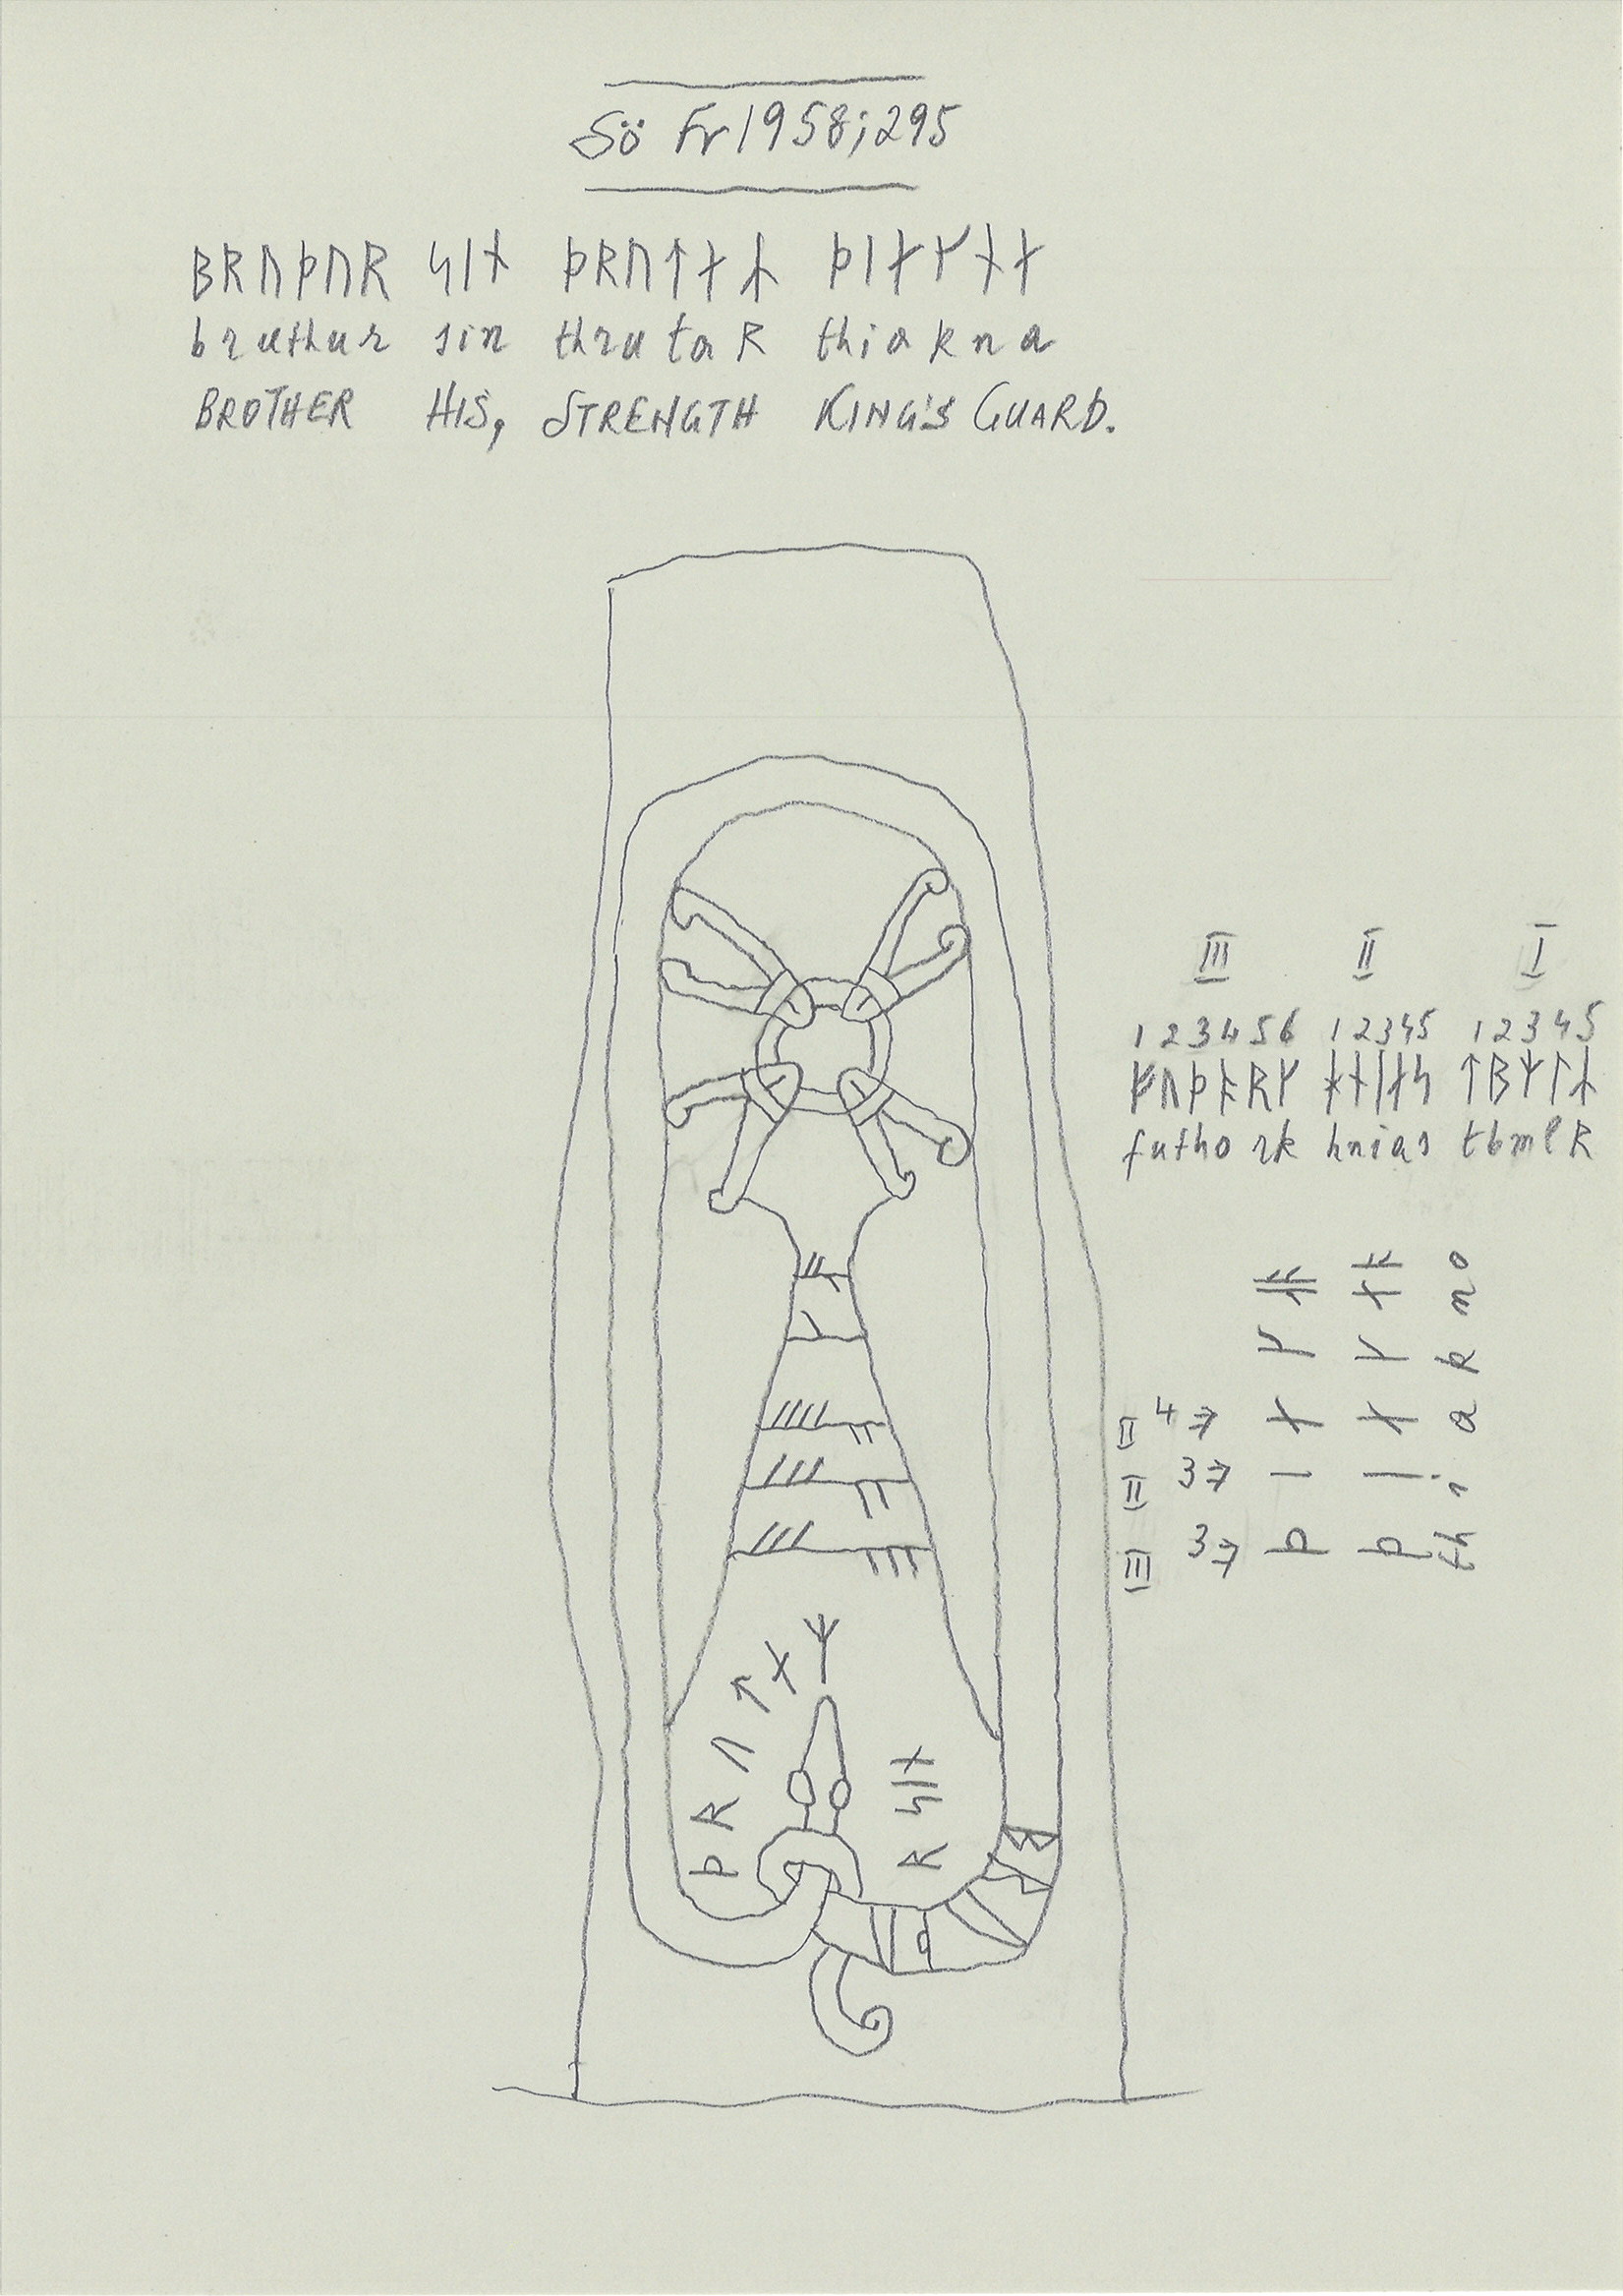 Sö Fr1958;295
ᛒᚱᚢᚦᚢᚱ ᛋᛁᚾ ᚦᚱᚢᛏᛅᛦ ᚦᛁᛅᚴᚾᛅ
bruthur sin thrutaR thiakna
BROTHER HIS, STRENGTH KING'S GUARD.
III II I
1 2 3 4 5 6 1 2 3 4 5 1 2 3 4 5
ᚠᚢᚦᚬᚱᚴ ᚼᚾᛁᛅᛋ ᛏᛒᛘᛚᛦ
futhork hnias tbmlR
II 4 ᛅ ᛅ a
II 3 ᛁ ᛁ i
III 3 ᚦ ᚦ th
ᚦᚱᚢᛏᛅᛘ
ᚱ ᛋᛁᚾ